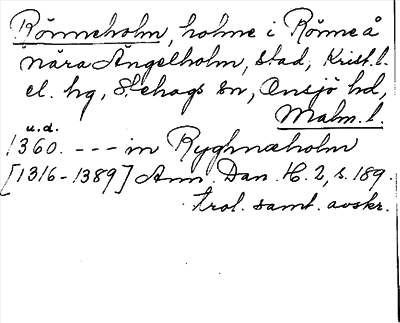 Rönneholm, holme i Rönneå
nära Ängelholm, stad, Krist. l.
el. hg, Stehags sn, Onsjö hd,
Malm. l.
u.d.
1360. --- in Ryghnæholm
[1316-1389] Ann. Dan. H. 2, s. 189.
trol. samt. avskr.